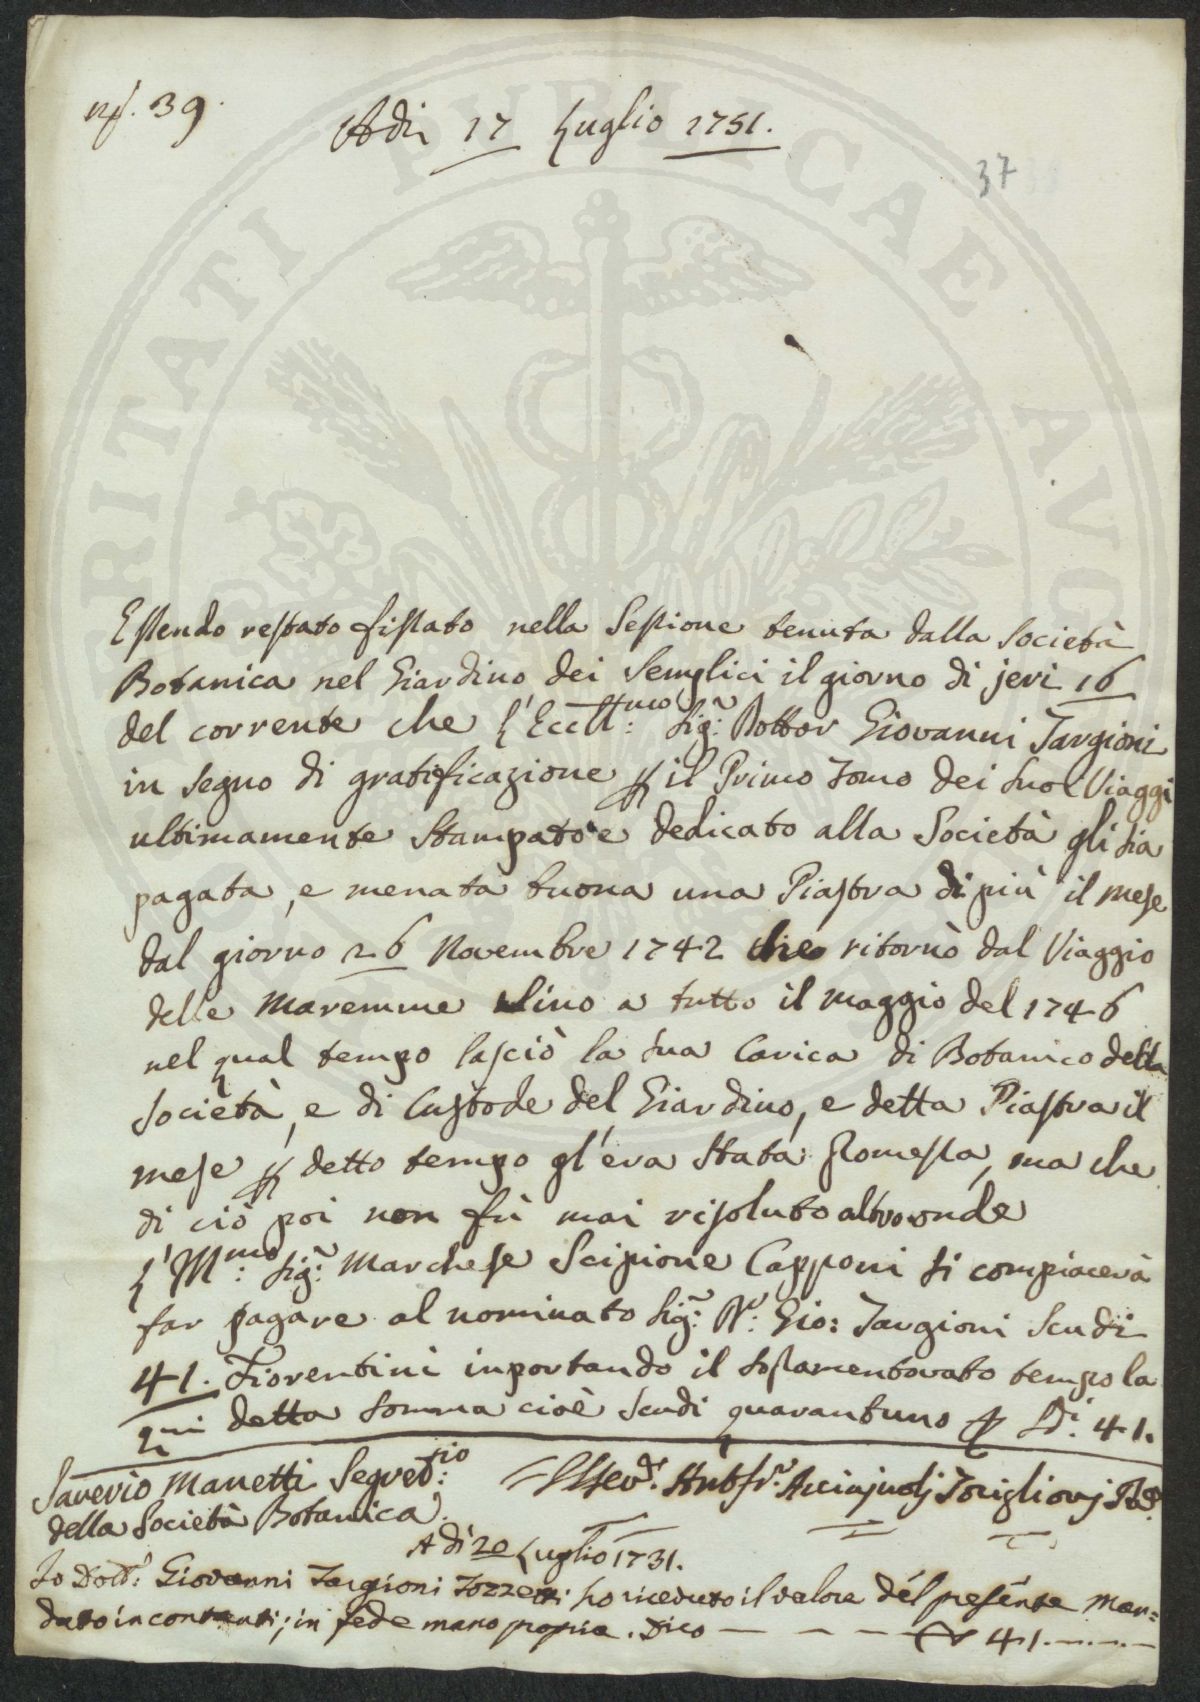 n°. 39.
Adi 17 Luglio 1751.
37
Essendo restato fissato nella Sessione tenuta dalla Società
Botanica nel Giardino dei Semplici il giorno di jeri 16
del corrente che l'Eccell:mo Sig:r Dottor Giovanni Targioni
in segno di gratificazione p il Primo Tomo dei suoi Viaggi
ultimamente stampato e dedicato alla Società gli sia
pagata, e menata buona una Piastra di più il mese
dal giorno 26 Novembre 1742 che ritornò dal Viaggio
delle Maremme sino a tutto il maggio del 1746
nel qual tempo lasciò la sua Carica di Botanico della
Società, e di Custode del Giardino, e detta Piastra il
mese p detto tempo gl'era stata promessa, ma che
di ciò poi non fù mai risoluto altro onde
l'Ill:mo Sig:r Marchese Scipione Capponi si compiacerà
far pagare al nominato Sig:r D:r Gio: Targioni Scudi
41. Fiorentini importando il soprammentovato tempo la
qui detta somma cioè scudi quarantuno Sdi. 41.
Saverio Manetti Segret:rio
della Società Botanica.
Adì 20 Luglio 1751.
Io Dott:r Giovanni Targioni Tozzetti ho ricevuto il valore del presente Man=
dato in contanti; in fede mano propria. Dico — — — — 41.—.—.—
RITATI PVBLICAE AVC